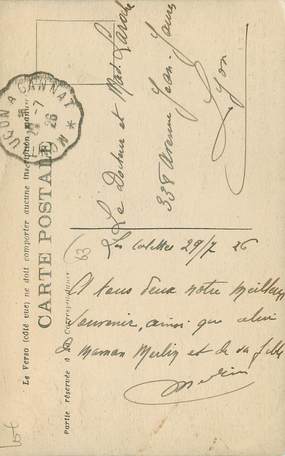 CARTE POSTALE
Le Verso (côté vue) ne doit comporter aucune inscription manuscrite
Partie réservée à la Correspondance
LUÇON A GANNAT
29-7
26
Le Docteur et Mad.
338 Avenue Jean-Jaurès
Lyon
63
29/7 26
A tous deux notre meilleur
souvenir, ainsi que celui
de maman Merlin et de sa fille
Merlin